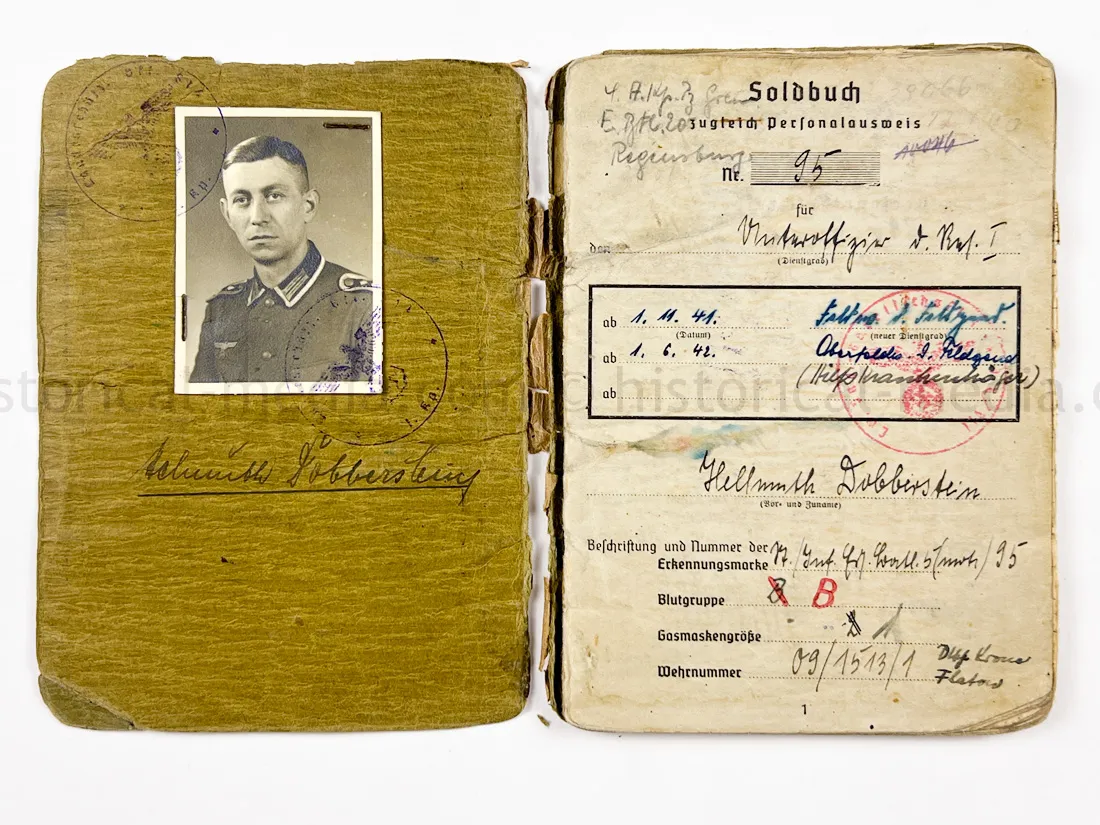 Hellmuth Dobberstein
4. A. Kp. Pz Gren
E. Btl. 20
Regensburg
Soldbuch
zugleich Personalausweis
Nr. 95
für
den Unteroffizier d. Res. I
(Dienstgrad)
ab 1. 11. 41. Feldw. d. Feldgend.
(Datum) (neuer Dienstgrad)
ab 1. 6. 42. Oberfeldw. d. Feldgend
(Hilfskrankenträger)
ab
Hellmuth Dobberstein
(Vor- und Zuname)
Beschriftung und Nummer der
Erkennungsmarke St./Inf. Ers. Batl. 5 (mot.) 95
Blutgruppe B B
Gasmaskengröße 2 1
Wehrnummer 09/1513/1
Krone
Flatow
1
historical-media